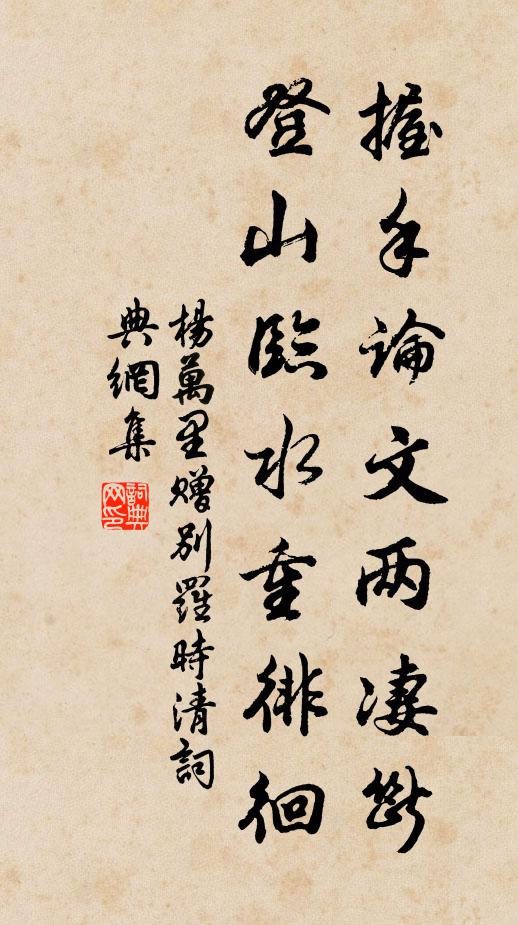 握手論文两凄斷
登山臨水重徘徊
楊萬里贈別羅時清詞
典網集
詞典
网印